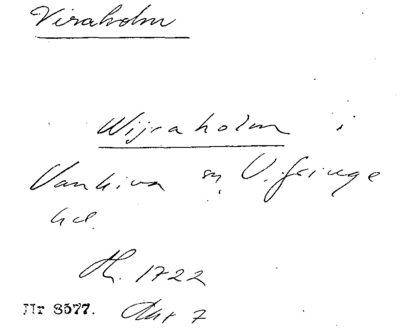 Viraholm
Wijraholm i
Vankiva sn, V. Göinge
hd.
Th. 1722
Nr 8577. Akt 7